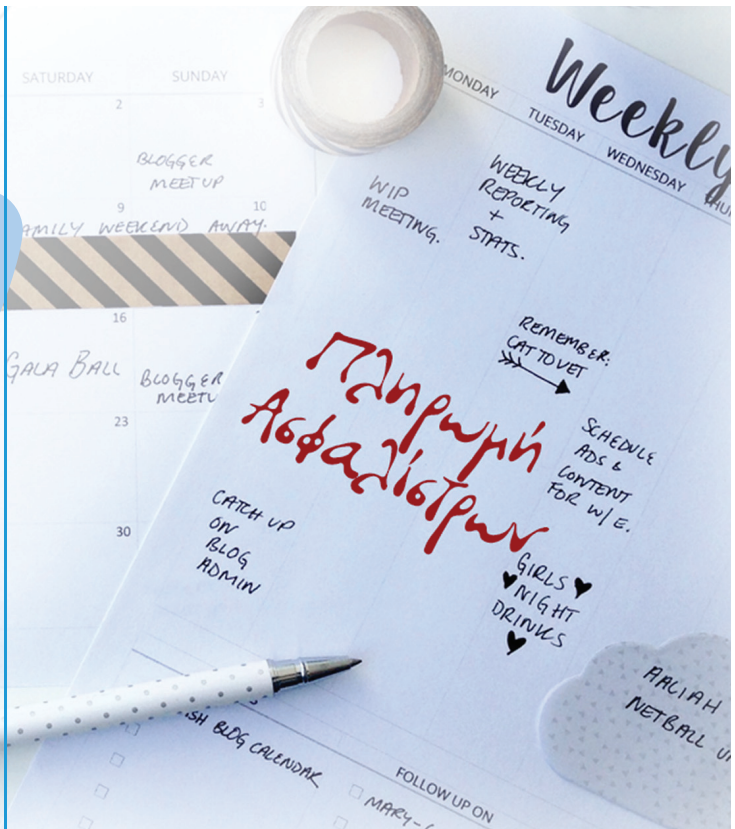 SATURDAY SUNDAY
2 3
BLOGGER
MEETUP
9 10
FAMILY WEEKEND AWAY.
16
GALA BALL
BLOGGER
23
30
Weekly
MONDAY TUESDAY WEDNESDAY
WIP
MEETING.
WEEKLY
REPORTING
+
STATS.
REMEMBER:
CAT TO VET
Πληρωμή
Ασφαλίστρων
SCHEDULE
ADS &
CONTENT
FOR W/E.
CATCH UP
ON
BLOG
ADMIN
GIRLS
NIGHT
DRINKS
AALIAH
NETBALL
BLOG CALENDAR
FOLLOW UP ON